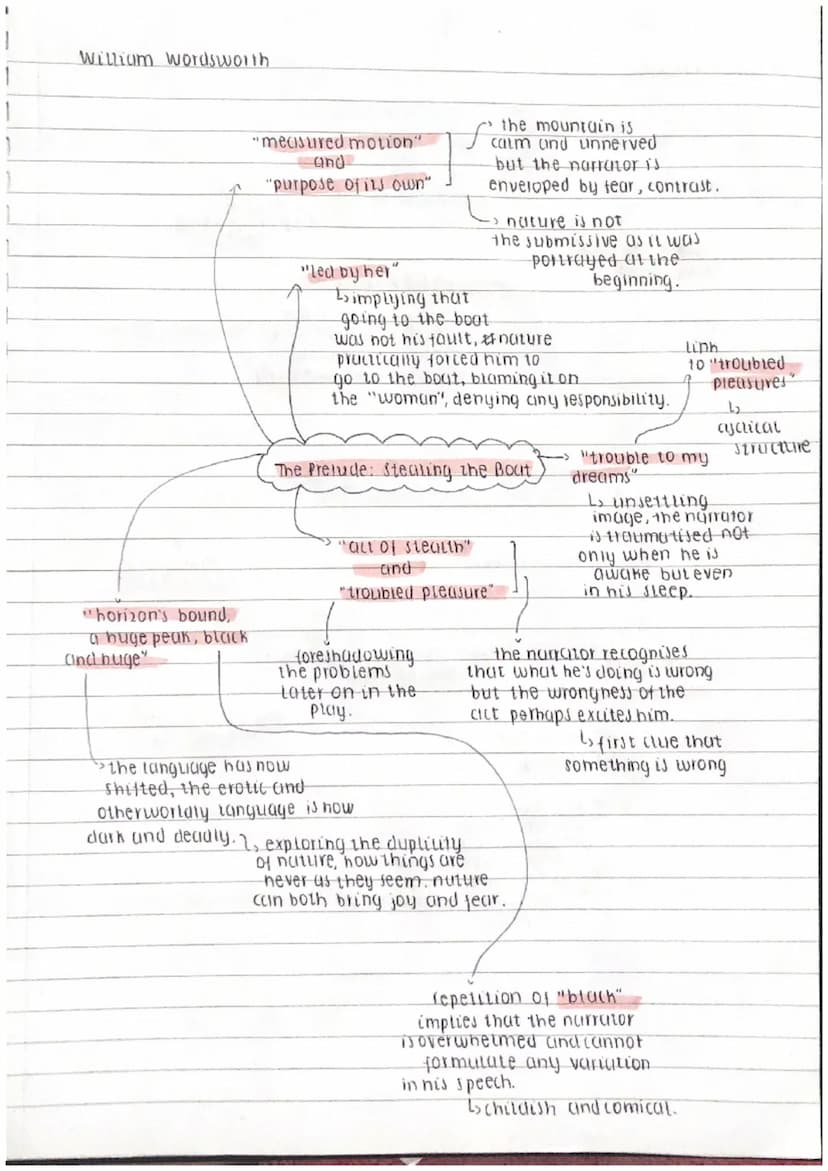 William Wordsworth
"measured motion"
and
"purpose of its own"
→ the mountain is
calm and unnerved
but the narrator is
enveloped by fear, contrast.
→ nature is not
the submissive as it was
portrayed at the
beginning.
"led by her"
↳ implying that
going to the boat
was not his fault, nature
practically forced him to
go to the boat, blaming it on
the "woman", denying any responsibility.
link
to "troubled
pleasures"
↳
cyclical
structure
The Prelude: Stealing the Boat
→ "trouble to my
dreams"
↳ unsettling
image, the narrator
is traumatised not
only when he is
awake but even
in his sleep.
"act of stealth"
and
"troubled pleasure"
foreshadowing
the problems
later on in the
play.
the narrator recognises
that what he's doing is wrong
but the wrongness of the
act perhaps excites him.
↳ first clue that
something is wrong
"horizon's bound,
a huge peak, black
and huge"
→ the language has now
shifted, the erotic and
otherworldly language is now
dark and deadly.
↳ exploring the duplicity
of nature, how things are
never as they seem. nature
can both bring joy and fear.
repetition of "black"
implies that the narrator
is overwhelmed and cannot
formulate any variation
in his speech.
↳ childish and comical.